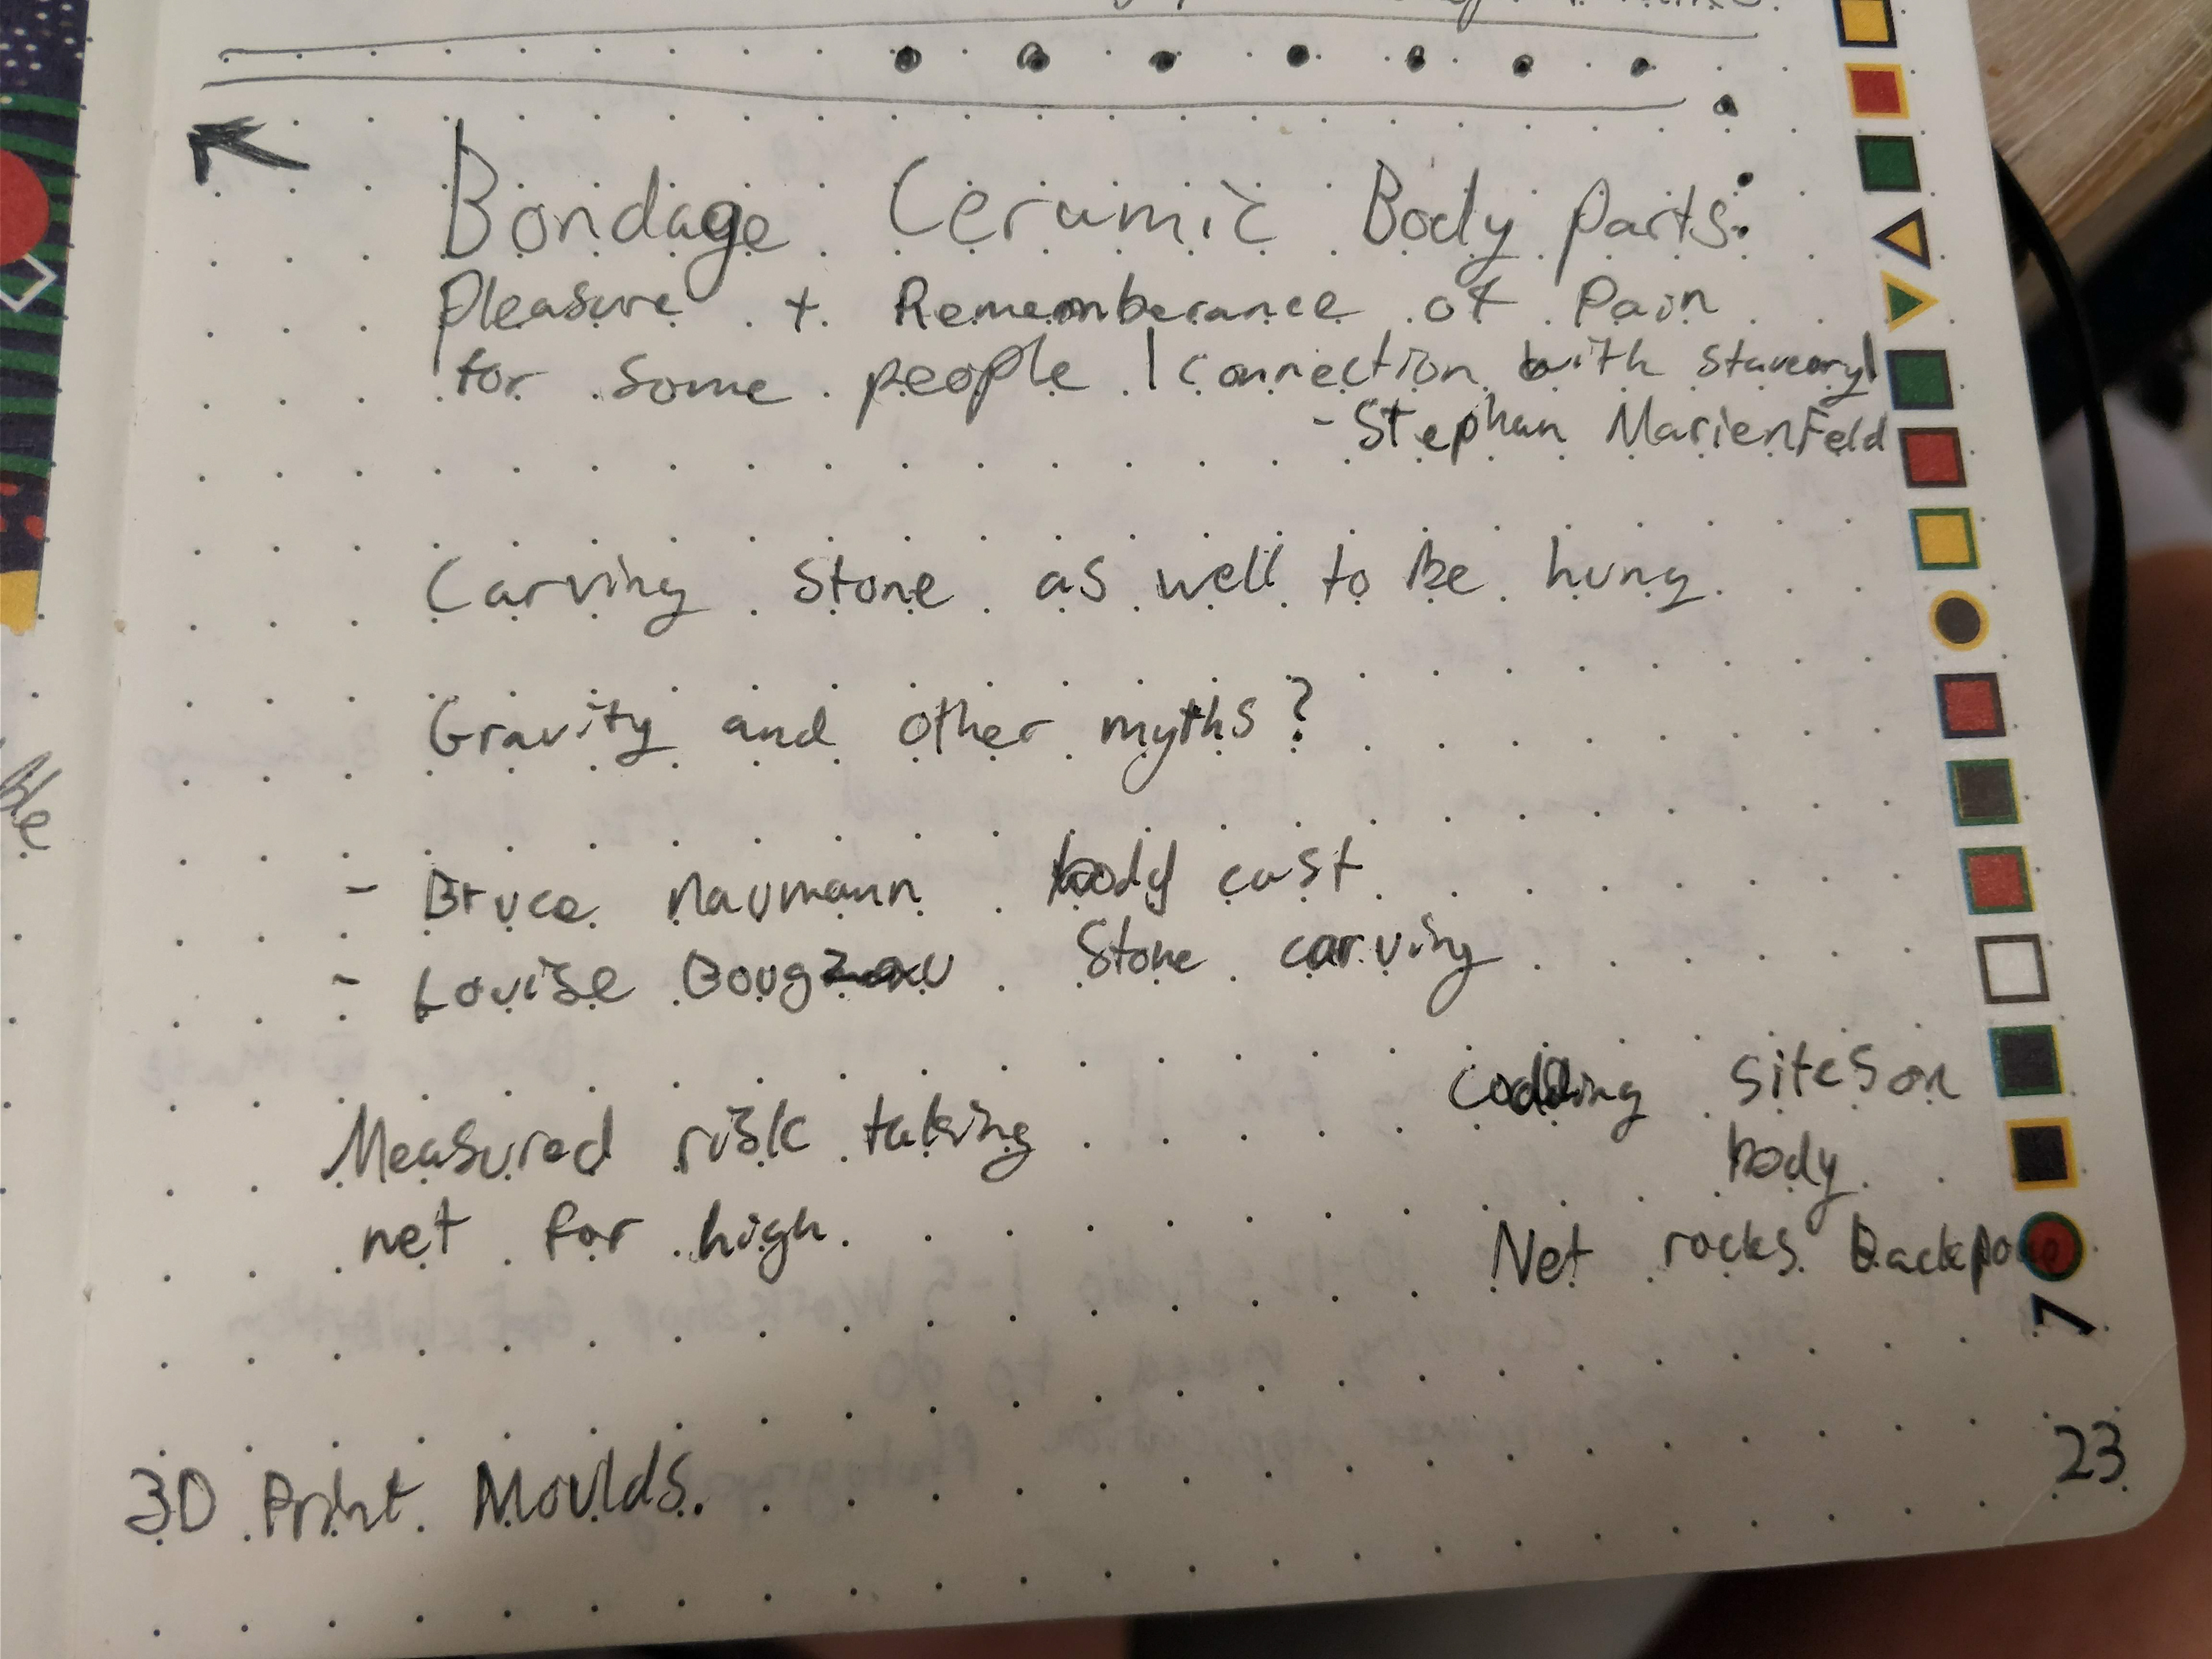 Bondage Ceramic Body Parts:
Pleasure + Rememberance of Pain
for some people | Connection with
- Stephan Marienfeld
Carving Stone as well to Be hung
Gravity and other myths?
- Bruce Naumann body cast
- Louise Stone carving
sites on
body
Measured risk taking
net for high
Net rocks
3D Print Moulds.
23